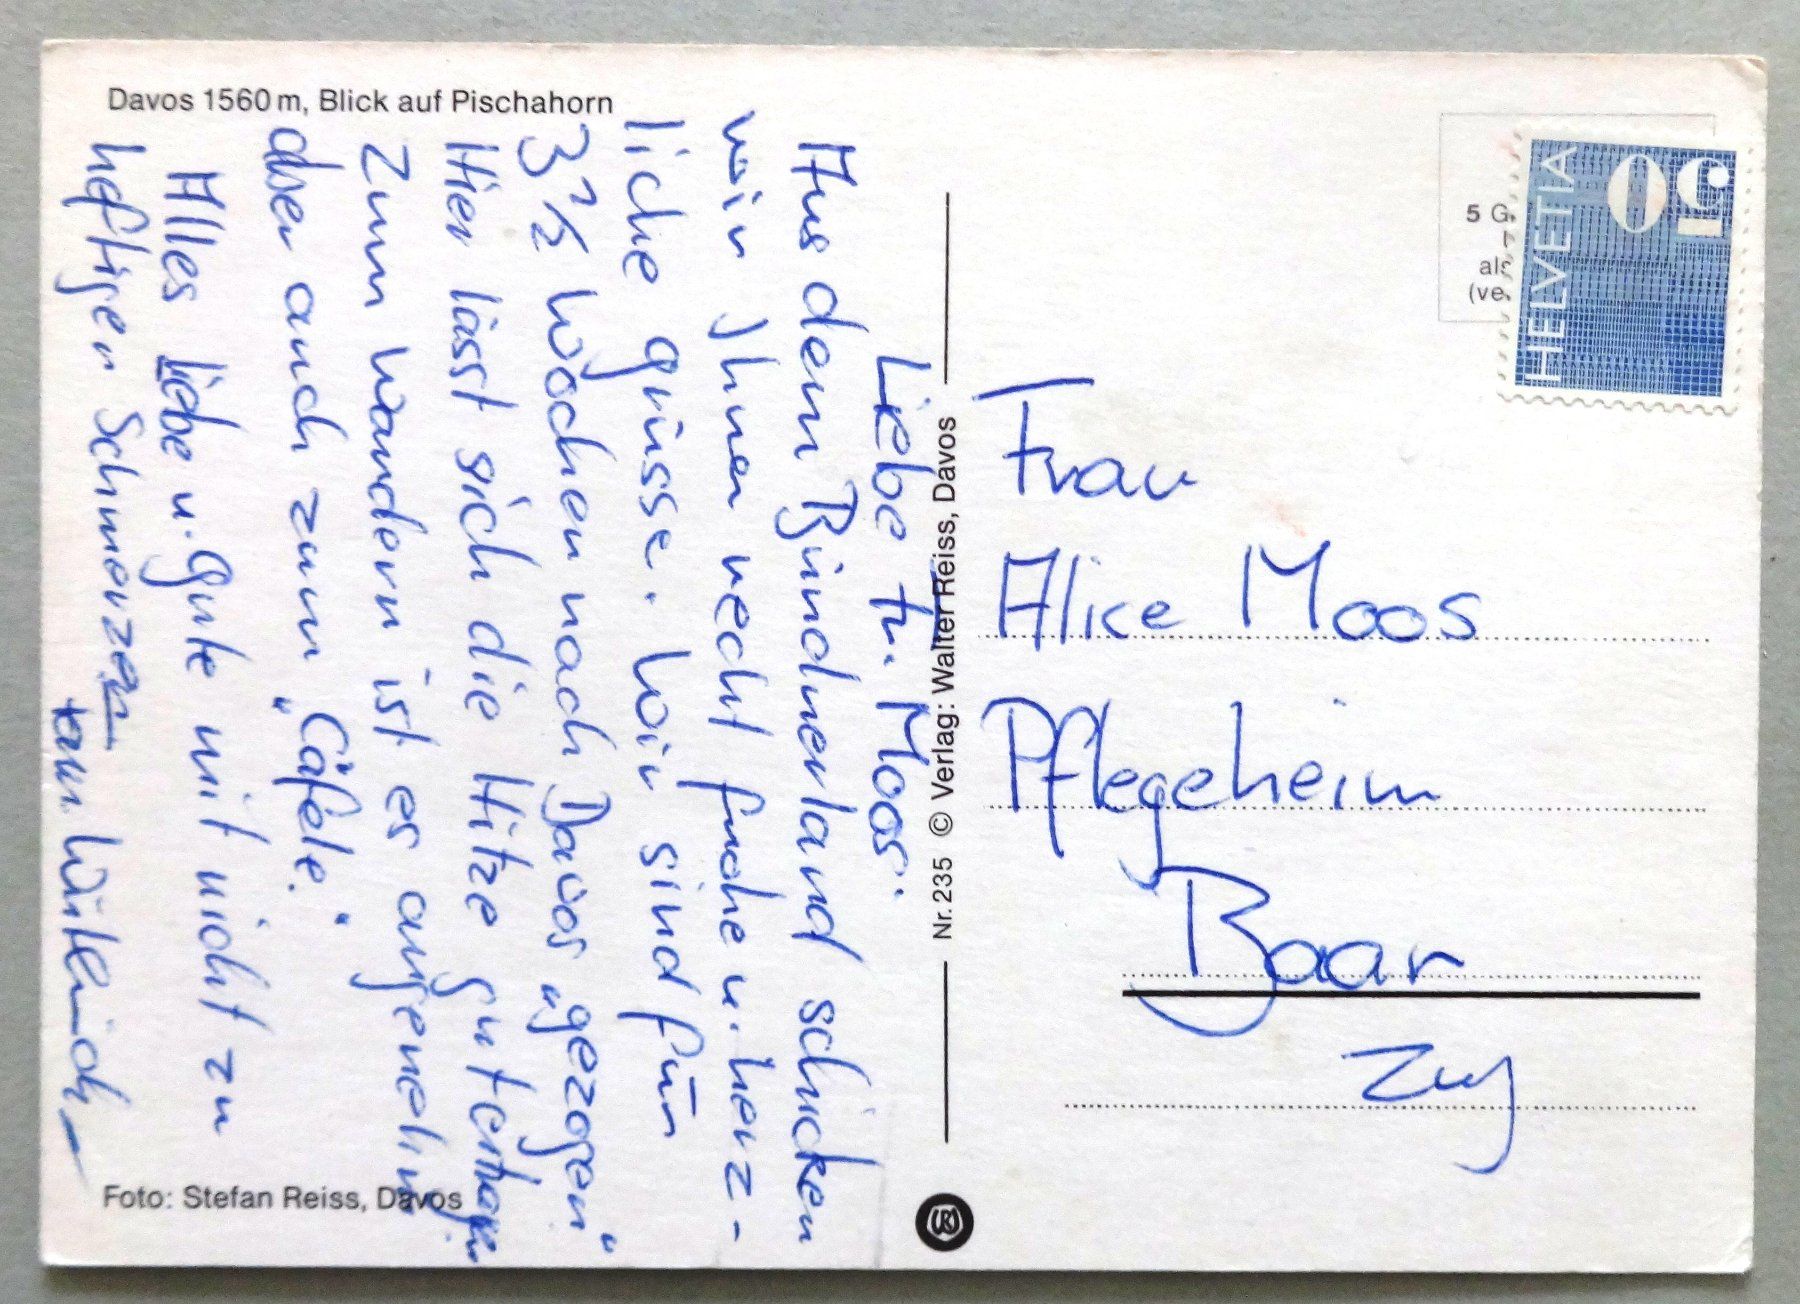 Davos 1560 m, Blick auf Pischahorn
Liebe Fr. Moos.
Aus dem Bündnerland schicken
wir Ihnen recht frohe u. herz-
liche grüsse. Wir sind für
3½ Wochen nach Davos "gezogen"
Hier lässt sich die Hitze gut ertragen
Zum wandern ist es angenehm
aber auch zum "Cafele."
Alles Liebe u. Gute mit nicht zu
heftigen Schmerzen
Nr. 235 © Verlag: Walter Reiss, Davos
Foto: Stefan Reiss, Davos
HELVETIA
50
5 G.
als
(ve
Frau
Alice Moos
Pflegeheim
Baar
Zug